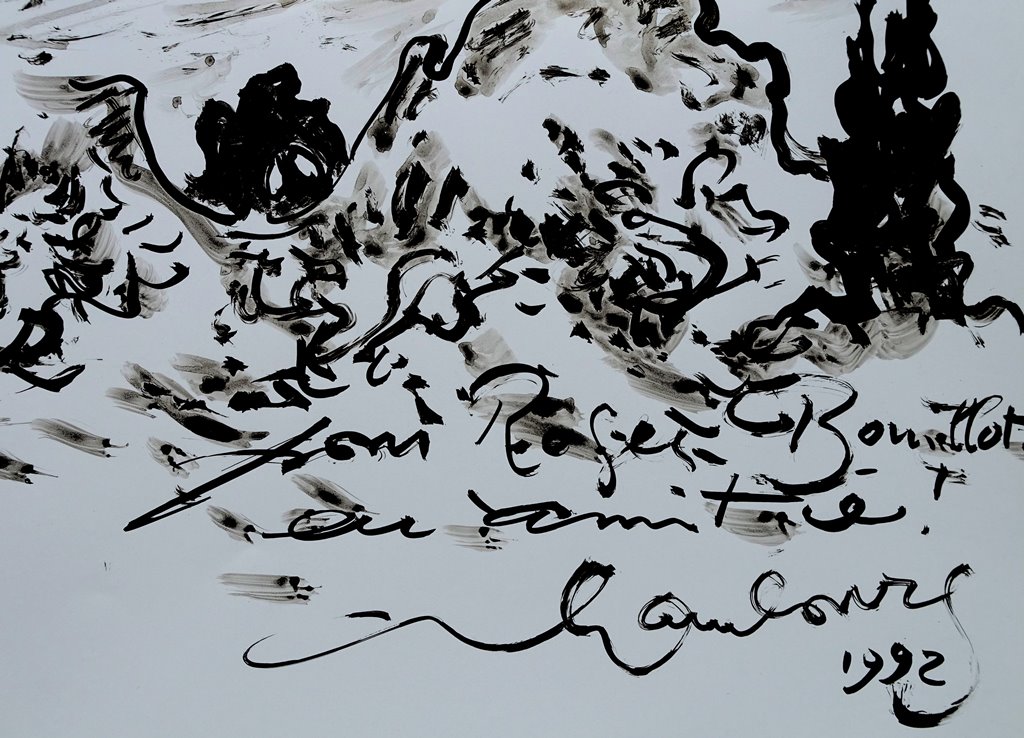 pour Roger Bouillot
en amitié !
Chambourg
1992